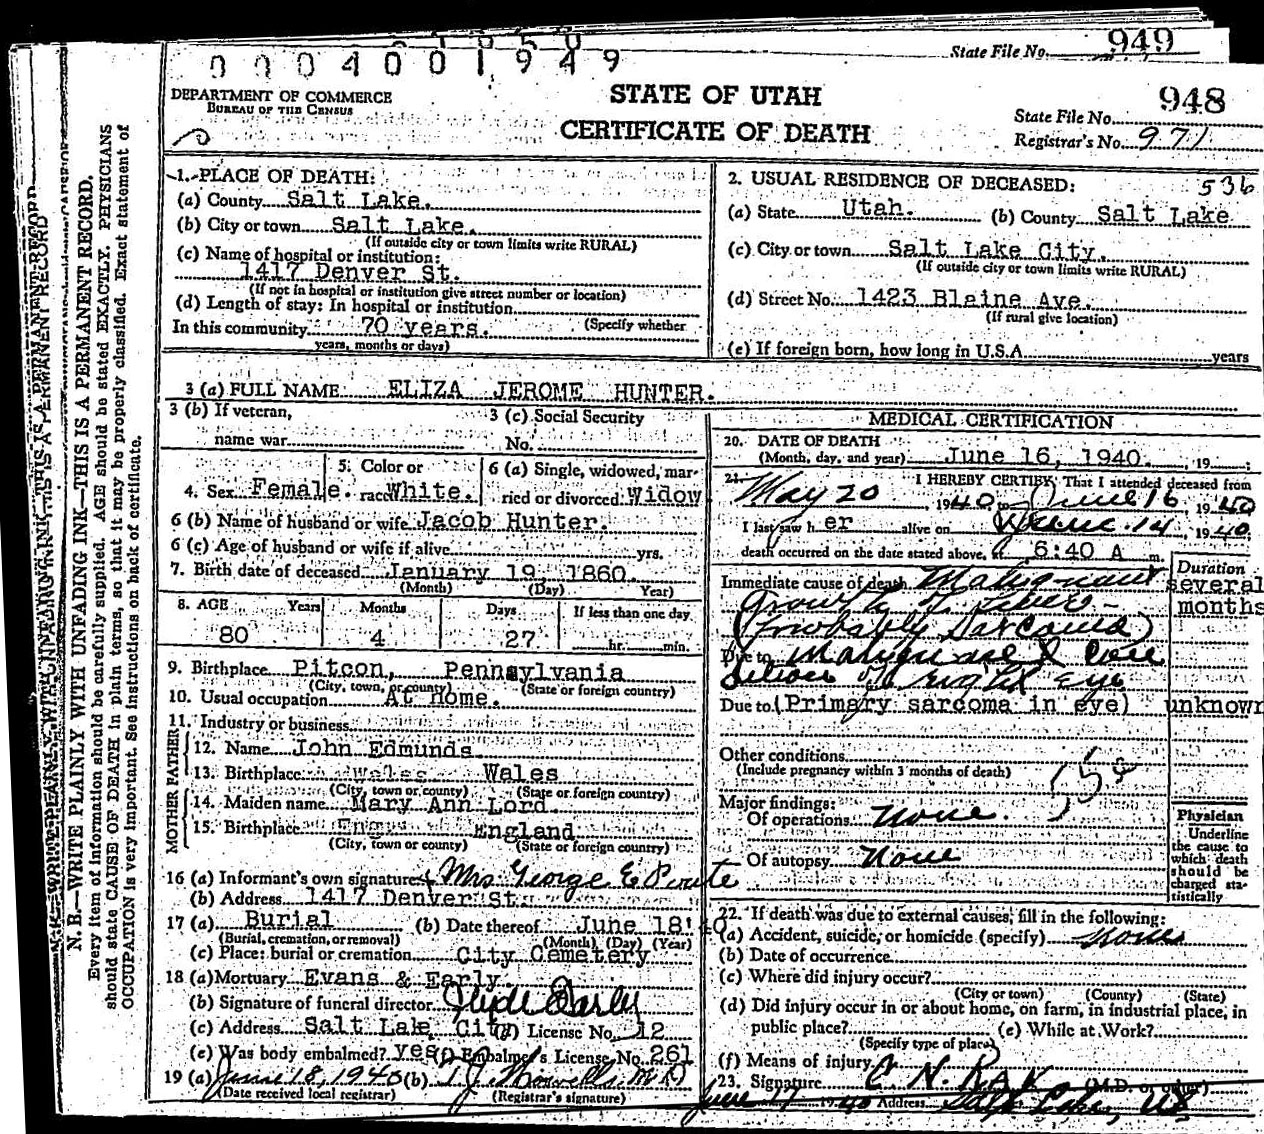 State File No. 949
0 0 0 4 0 0 1 9 4 9
DEPARTMENT OF COMMERCE
BUREAU OF THE CENSUS
STATE OF UTAH
CERTIFICATE OF DEATH
948
State File No.
Registrar's No. 971
1. PLACE OF DEATH:
(a) County Salt Lake.
(b) City or town Salt Lake.
(If outside city or town limits write RURAL)
(c) Name of hospital or institution:
1417 Denver St.
(If not in hospital or institution give street number or location)
(d) Length of stay: In hospital or institution
In this community 70 years. (Specify whether
years, months or days)
2. USUAL RESIDENCE OF DECEASED: 536
(a) State Utah. (b) County Salt Lake
(c) City or town Salt Lake City.
(If outside city or town limits write RURAL)
(d) Street No. 1423 Blaine Ave.
(If rural give location)
(e) If foreign born, how long in U.S.A. years
3 (a) FULL NAME ELIZA JEROME HUNTER.
3 (b) If veteran,
name war
3 (c) Social Security
No.
4. Sex Female. 5. Color or race White. 6 (a) Single, widowed, married or divorced Widow
6 (b) Name of husband or wife Jacob Hunter.
6 (c) Age of husband or wife if alive yrs.
7. Birth date of deceased January 19 1860.
(Month) (Day) Year)
8. AGE Years Months Days If less than one day
80 4 27 hr. min.
9. Birthplace Pitcon, Pennsylvania
(City, town, or county) (State or foreign country)
10. Usual occupation At home.
11. Industry or business
FATHER
12. Name John Edmunds
13. Birthplace Wales Wales
(City, town or county) (State or foreign country)
MOTHER
14. Maiden name Mary Ann Lord
15. Birthplace England
(City, town or county) (State or foreign country)
16 (a) Informant's own signature Mrs George E
(b) Address 1417 Denver St.
17 (a) Burial (b) Date thereof June 18 '40
(Burial, cremation, or removal) (Month) (Day) (Year)
(c) Place: burial or cremation City Cemetery
18 (a) Mortuary Evans & Early
(b) Signature of funeral director Clyde Early
(c) Address Salt Lake City (d) License No. 12
(e) Was body embalmed? yes (f) Embalmer's License No. 261
19 (a) June 18, 1940 (b) T.J. Howells M D
(Date received local registrar) (Registrar's signature)
MEDICAL CERTIFICATION
20. DATE OF DEATH
(Month, day, and year) June 16, 1940. , 19 ;
21. I HEREBY CERTIFY, That I attended deceased from
May 20, 1940 to June 16, 1940
I last saw her alive on June 14, 1940.
death occurred on the date stated above, at 6:40 A m.
Duration
Immediate cause of death Malignant several
growth of liver - months
(Probably Sarcoma)
Due to Malignant
of right Eye
Due to (Primary sarcoma in eye) unknown
Other conditions
(Include pregnancy within 3 months of death)
Major findings:
Of operations None.
Of autopsy None
Physician
Underline
the cause to
which death
should be
charged sta-
tistically
22. If death was due to external causes, fill in the following:
(a) Accident, suicide, or homicide (specify) None
(b) Date of occurrence
(c) Where did injury occur?
(City or town) (County) (State)
(d) Did injury occur in or about home, on farm, in industrial place, in
public place? (e) While at Work?
(Specify type of place)
(f) Means of injury
23. Signature C. N. Ray (M.D. or other)
June 17 1940 Address Salt Lake, Ut
N. B.—WRITE PLAINLY WITH UNFADING INK—THIS IS A PERMANENT RECORD.
Every item of information should be carefully supplied. AGE should be stated EXACTLY. PHYSICIANS
should state CAUSE OF DEATH in plain terms, so that it may be properly classified. Exact statement of
OCCUPATION is very important. See instructions on back of certificate.